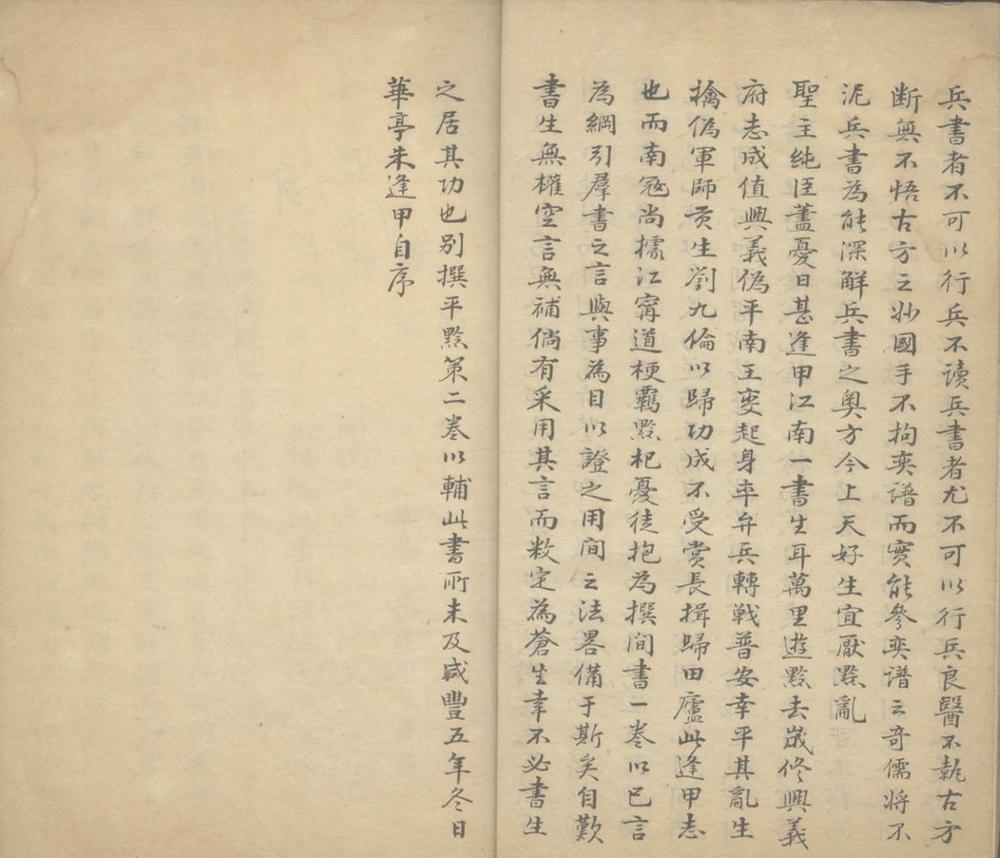 兵書者不可以行兵不读兵書者尤不可以行兵良醫不執古方
断無不悟古方之妙國手不拘奕谱而實能參奕谱之奇儒将不
泥兵書為能深解兵書之奧方今上天好生宜厭黔亂
聖主純臣蓋憂日甚逢甲江南一書生耳萬里遊黔去歲修興義
府志成值興義偽平南王变起身率弁兵轉戦普安幸平其亂生
擒偽軍師贡生劉九倫以歸功成不受賞長揖歸田廬此逢甲志
也而南冦尚據江甯道梗羁黔杞憂徒抱為撰間書一卷以已言
為綱引羣書之言與事為目以證之用間之法畧備于斯矣自歎
書生無權空言無補倘有采用其言而敉定為蒼生幸不必書生
之居其功也别撰平黔策二卷以輔此書所未及咸豐五年冬日
華亭朱逢甲自序